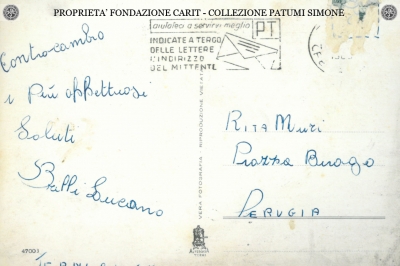 PROPRIETA' FONDAZIONE CARIT - COLLEZIONE PATUMI SIMONE
aiutateci a servirvi meglio
PT
INDICATE A TERGO
DELLE LETTERE
L'INDIRIZZO
DEL MITTENTE
Controcambio
i più affettuosi
Saluti
Luciano
Rita Muzi
Piazza
Perugia
VERA FOTOGRAFIA - RIPRODUZIONE VIETATA
TERNI